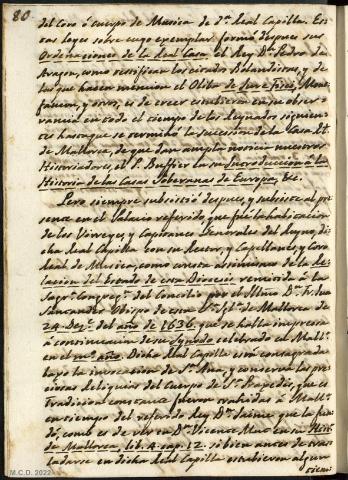 80
del Coro ó cuerpo de Musica de dha. Real Capilla. Es-
tas leyes sobre cuyo exemplar formó despues sus
Ordenaciones de la Real Casa el Rey Dn. Pedro de
Aragon, como testifican los citados Bolandistas, y de
las que hacen mencion el Oliba de Jure Fisci, Mont-
faucon, y otros, es de creer estubieron en su obser-
vancia en todo el tiempo de los Reynados siguien-
tes hasta que se terminó la sucession de la Casa Rl.
de Mallorca, de que dan ampla noticia nuestros
Historiadores, el P. Buffier en su Introduccion á la
Historia de las Casas Soberanas de Europa, &c.
Pero siempre subsistió despues, y subsiste al pre-
sente en el Palacio referido, que fue la habitacion
de los Virreyes, y Capitanes Generales del Reyno, di-
cha Real Capilla con su Rector, y Capellanes, y Coro
Real de Musica, como consta assimismo de la Re-
lacion del Estado de esta Diocesis remitida á la
Sagda. Congregn. del Concilio por el Illmo. Dn. Fr. Juan
Santander Obispo de esta Sta. Igla. de Mallorca de
24 Dezre. del año de 1636, que se halla impressa
á continuacion de su Synodo celebrado en Mallca.
en el mismo. año. Dicha Real Capilla está consagrada
bajo la invocacion de Sta. Ana, y conserva las pre-
ciosas Reliquias del Cuerpo de Sta. Praxedis, que es
Tradicion constante fueron trahidas á Mallca.
en tiempo del referido Rey Dn. Jaime que la fun-
dó, como es de ver en Dn. Vicente Mut en su Hista.
de Mallorca, lib. 4. cap. 12. si bien antes de tras-
ladarse en dicha Real Capilla estubieron algun
tiem-
M.C.D. 2022